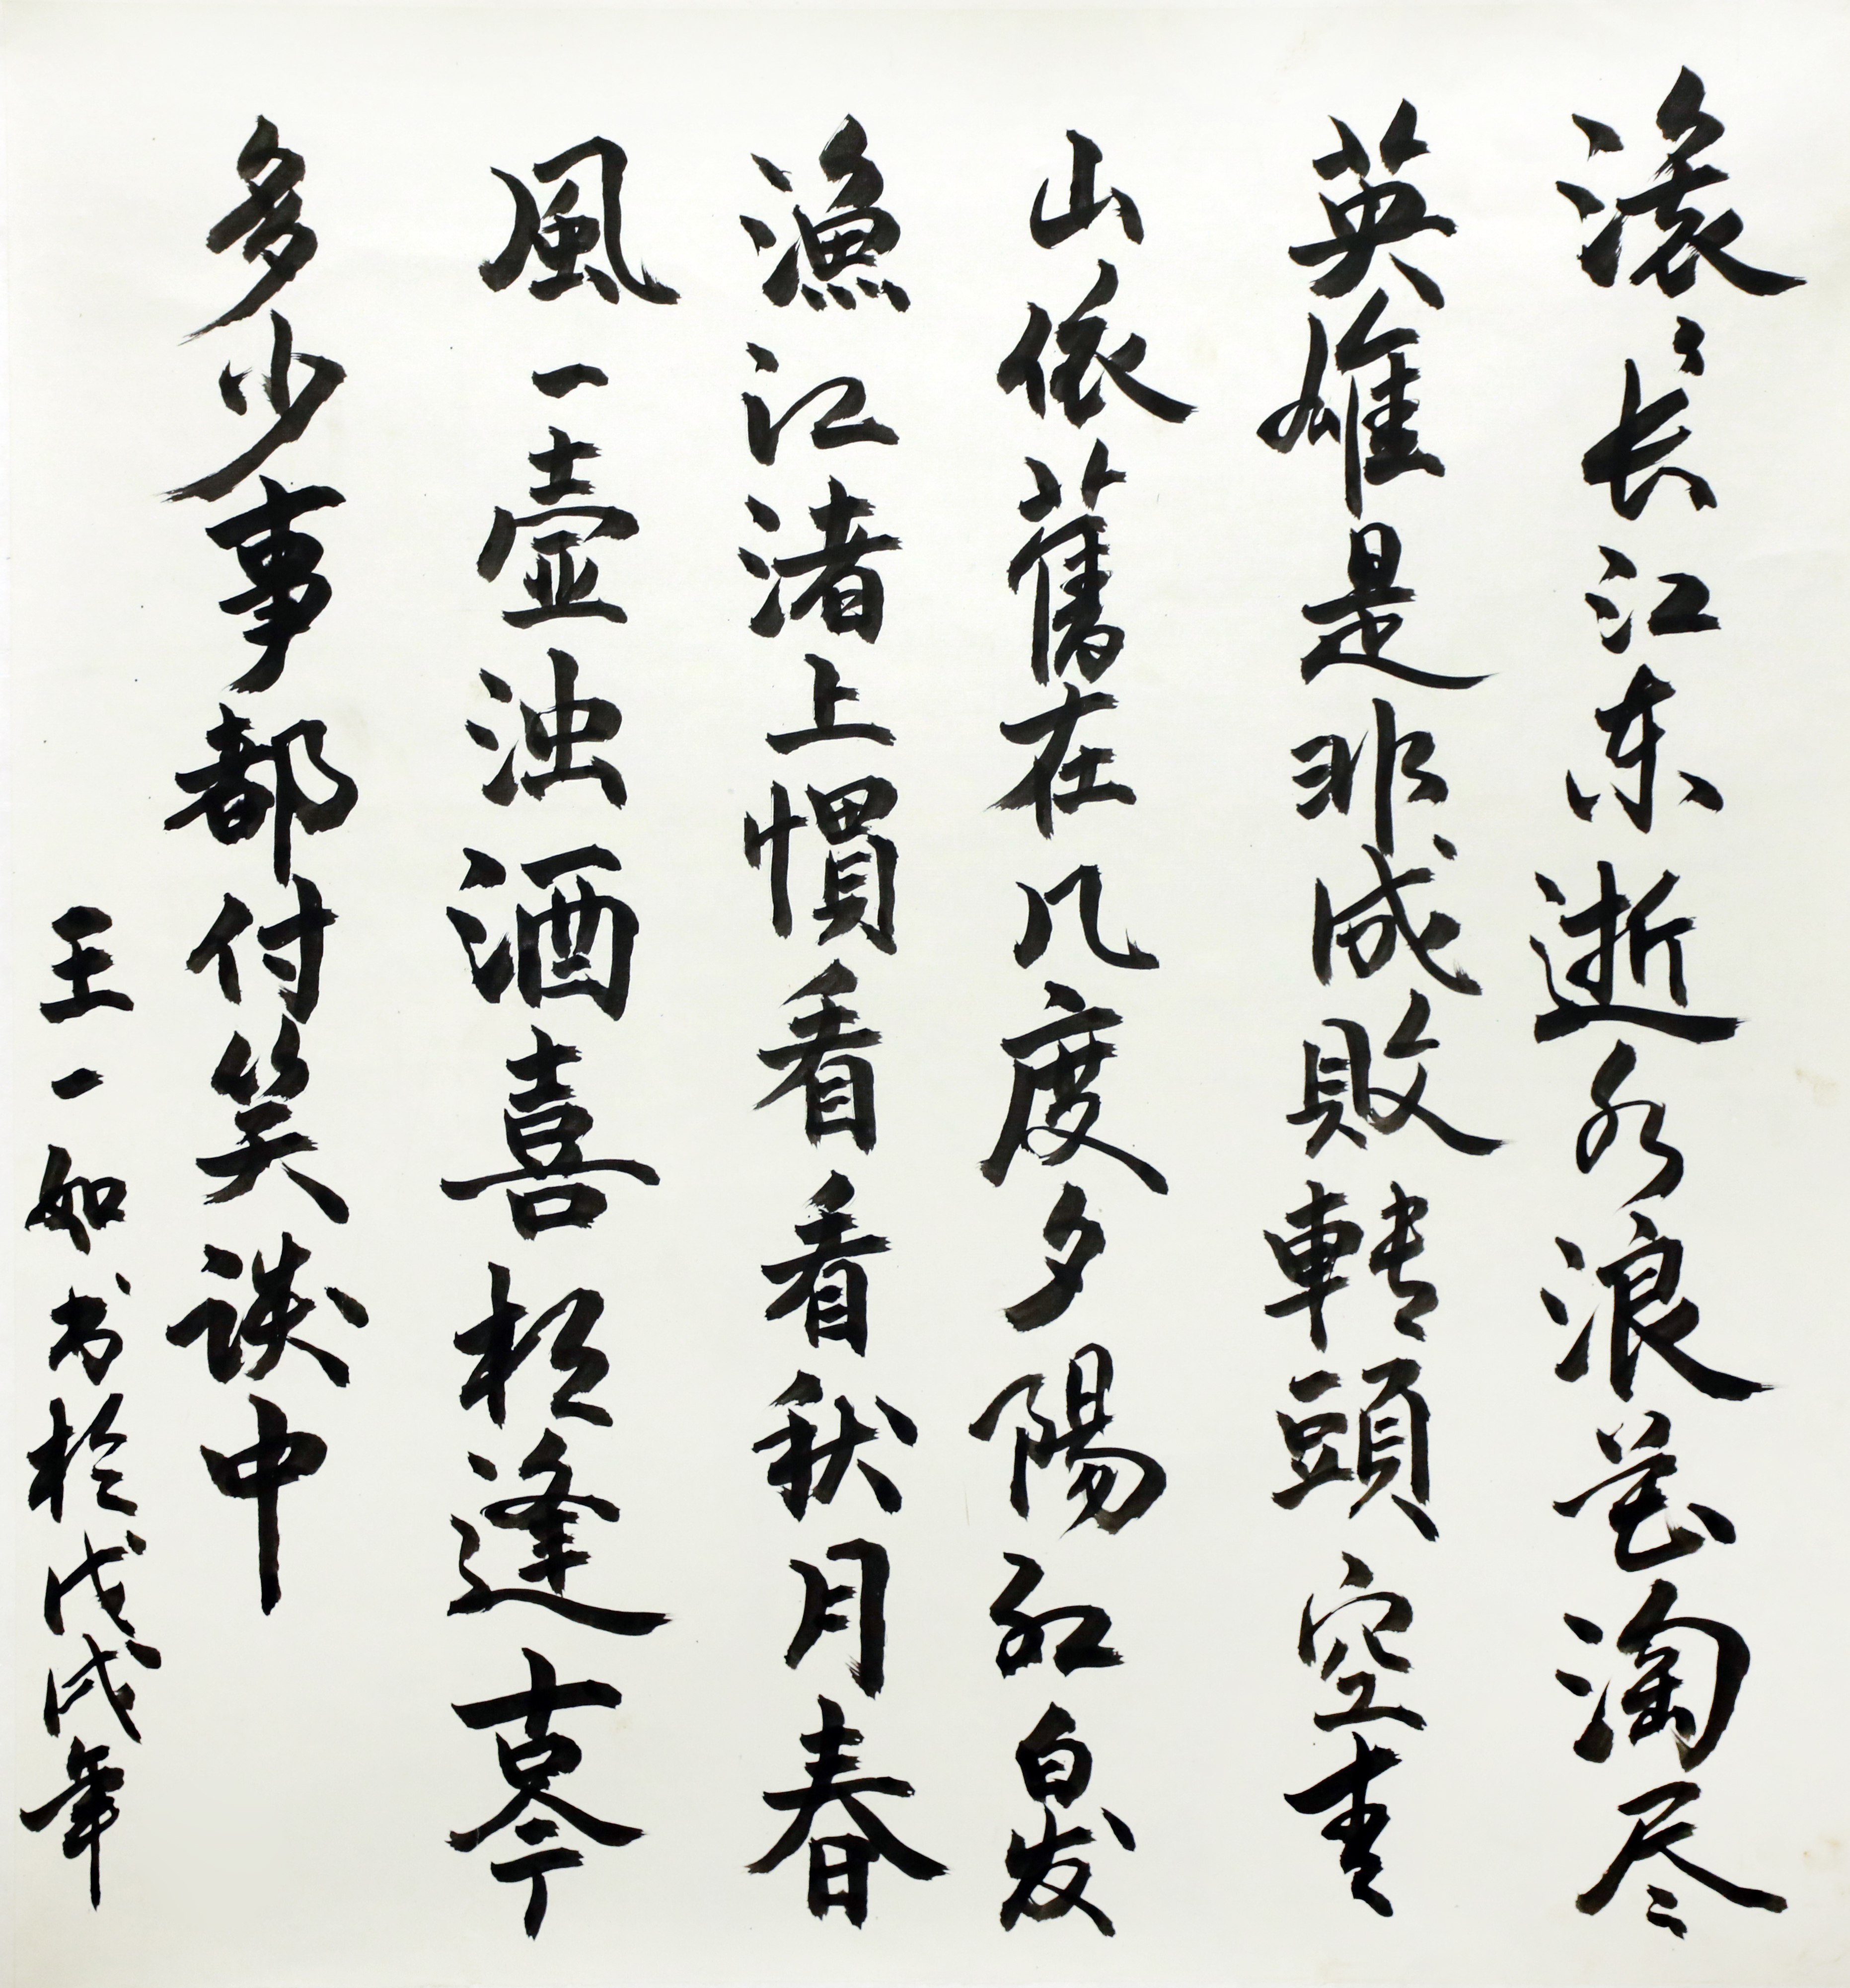 滚々长江东逝水浪花淘尽
英雄是非成敗轉頭空青
山依舊在几度夕陽红白发
漁江渚上慣看看秋月春
風一壶浊酒喜相逢古今
多少事都付笑谈中
王一如书於戊戌年